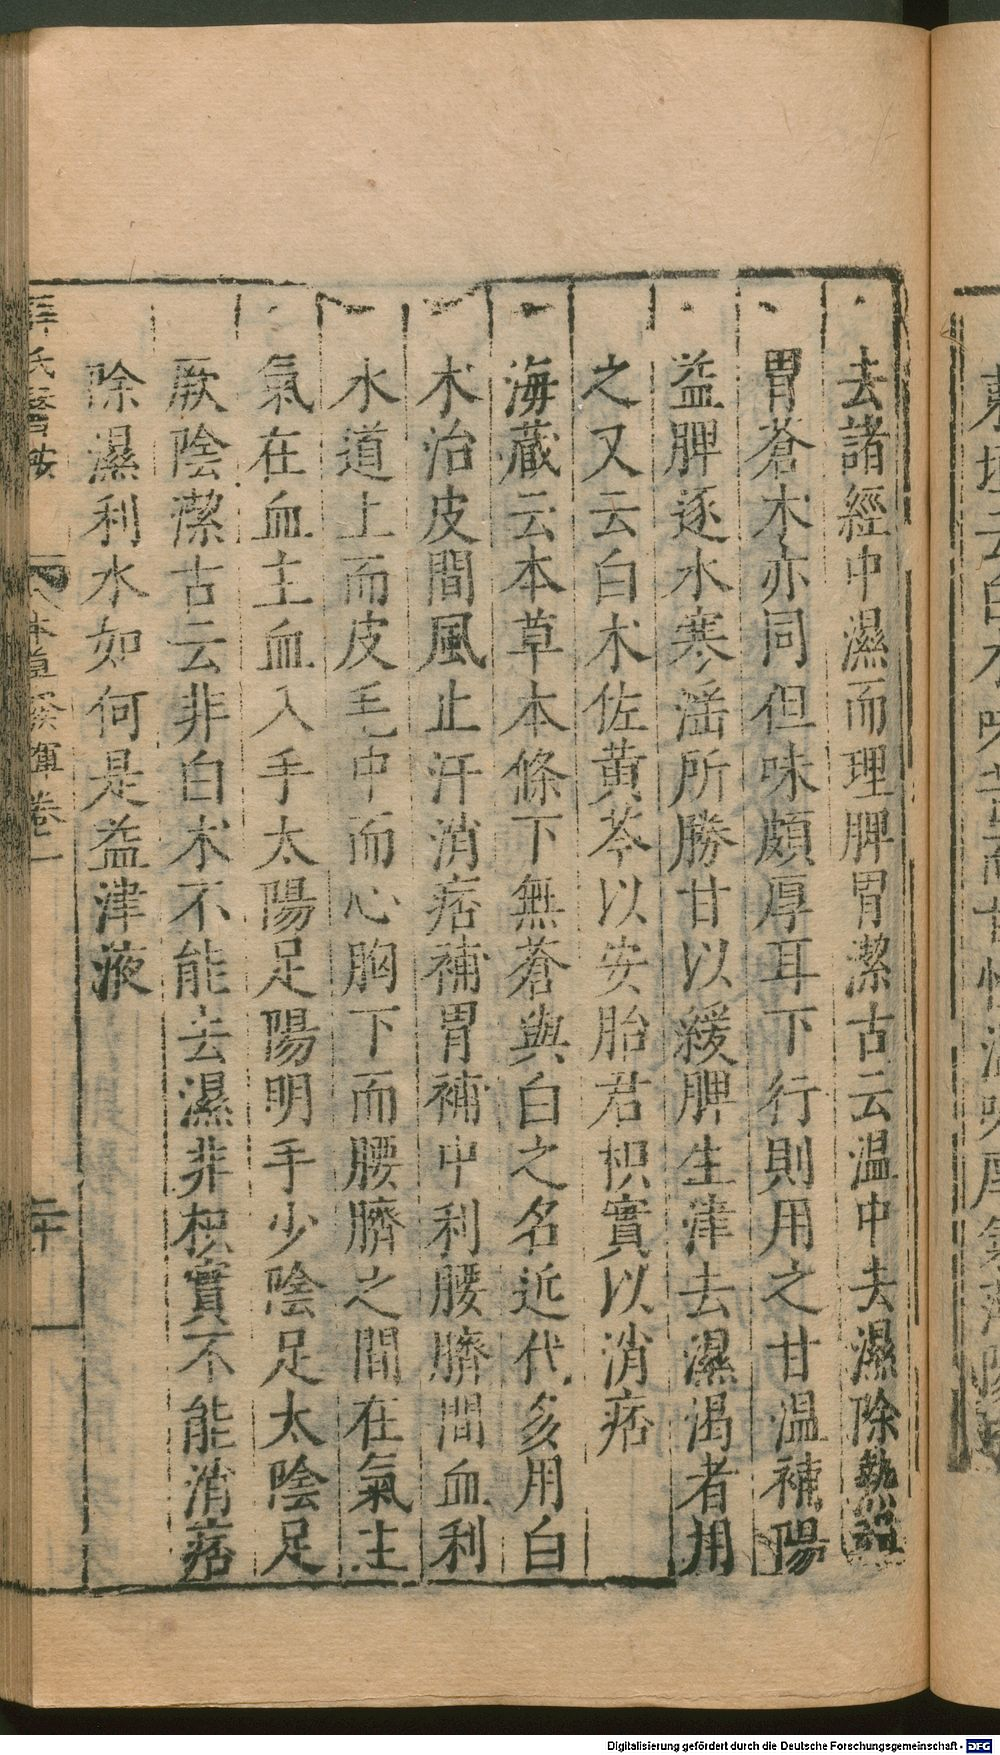 去諸經中濕而理脾胃潔古云温中去濕除熱
胃蒼术亦同但味頗厚耳下行則用之甘温補陽
益脾逐水寒淫所勝甘以緩脾生津去濕渴者用
之又云白术佐黄芩以安胎君枳實以消痞
海藏云本草本條下無蒼與白之名近代多用白
术治皮間風止汗消痞補胃補中利腰臍間血利
水道上而皮毛中而心胸下而腰臍之間在氣主
氣在血主血入手太陽足陽明手少陰足太陰足
厥陰潔古云非白术不能去濕非枳實不能消痞
除濕利水如何是益津液
氏醫按 本草發揮卷一 二十
Digitalisierung gefördert durch die Deutsche Forschungsgemeinschaft - DFG